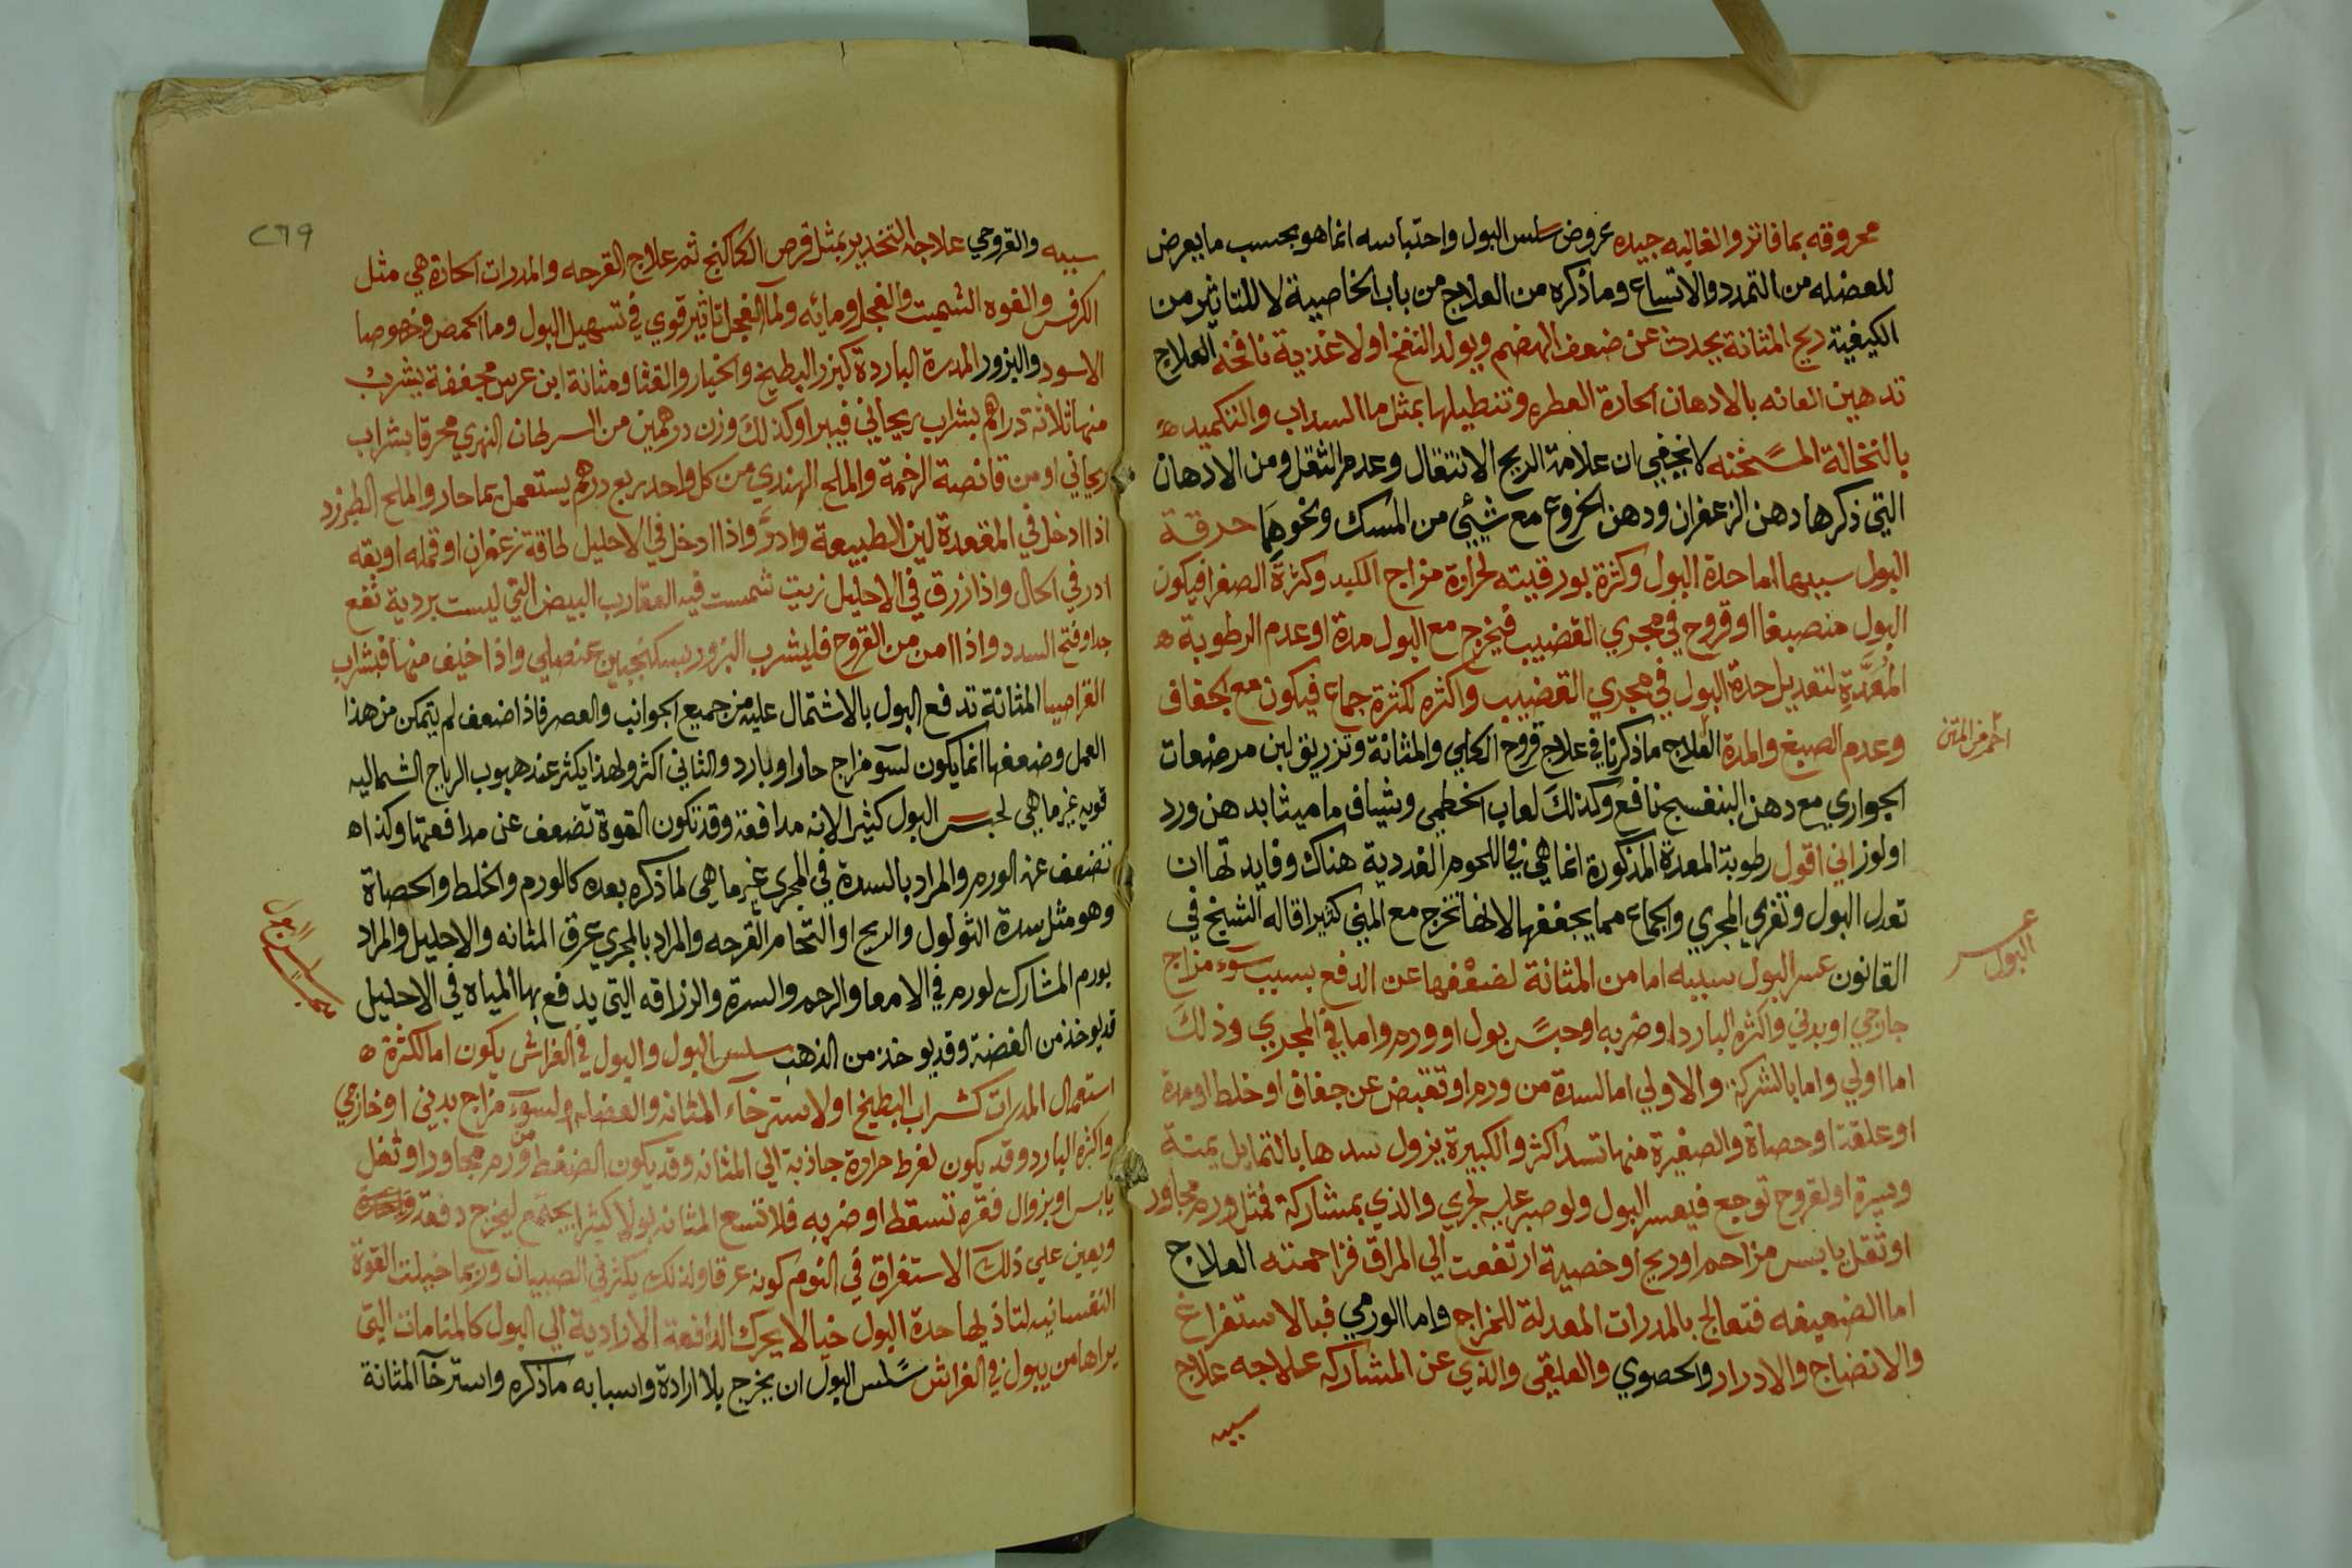 محروقه بما فاتر والغاليه جيده عروض سلس البول واحتباسه انما هو بحسب ما يعرض
للعضله من التمدد والاتساع وما ذكره من العلاج من باب الخاصية لا للتاثير من
الكيفية ريح المثانة يحدث عن ضعف الهضم ويولد النفخ او لاغذية نافخه العلاج
تدهين العانه بالادهان الحارة العطره وتنطيلها بمثل ما السداب والتكميد ه
بالنخالة المسخنه لا يخفي ان علامة الريح الانتقال وعدم الثقل ومن الادهان
التي ذكرها دهن الزعفران ودهن الخروع مع شيئ من المسك ونحوهما حرقة
البول سببها اما حدة البول وكثرة بورقيته لحرارة مزاج الكبد وكثرة الصفرا فيكون
البول منصبغا او قروح في مجري القضيب فيخرج مع البول مدة او عدم الرطوبة ه
المعدة لتعديل حدة البول في مجري القضيب واكثره لكثرة جماع فيكون مع الجفاف
وعدم الصبغ والمدة العلاج ما ذكرنا في علاج قروح الكلي والمثانة وتزريق لبن مرضعات
احمر من المتن
الجواري مع دهن البنفسج نافع وكذلك لعاب الخطمي وشياف ماميثا بدهن ورد
او لوز اني اقول رطوبة المعدة المذكورة انما هي في اللحوم الغددية هناك وفايدتها ان
تعدل البول وتغري المجري والجماع مما يجففها لانها تخرج مع المني كثيرا قاله الشيخ في
القانون عسر البول سببه اما من المثانة لضعفها عن الدفع بسبب سوء مزاج
عسر
البول
خارجي او بدني واكثره البارد او ضربه او حبس بول او ورم واما في المجري وذلك
اما اولي واما بالشركة والاولي اما لسدة من ورم او تقبض عن جفاف او خلط او مدة
او علقة او حصاة والصغيرة منها تسد اكثر والكبيرة يزول سدها بالتمايل يمنة
ويسرة او لقروح توجع فيعسر البول ولو صبر عليه لجري والذي بمشاركة فمثل ورم مجاور
او ثقل يابس مزاحم او ريح او خصية ارتفعت الي المراق فزاحمته العلاج
اما الضعيفه فتعالج بالمدرات المعدلة للمزاج واما الورمي فبالاستفراغ
والانضاج والادرار والحصوي والعلقي والذي عن المشاركه علاجه علاج
سببه
٢٦٩
سببه والقروحي علاجه التخدير بمثل قرص الكاكنج ثم علاج القرحه والمدرات الحارة هي مثل
الكرفس والفوه الشميت والفجل ومائه ولما الفجل تاثير قوي في تسهيل البول وما الحمص وخصوصا
الاسود والبزور المدرة الباردة كبزر البطيخ والخيار والقثا ومثانة ابن عرس مجففة يشرب
منها ثلاثة دراهم بشراب ريحاني فيبرا وكذلك وزن درهمين من السرطان النهري محرقا بشراب
ريحاني او من قانصة الرخمة والملح الهندي من كل واحد ربع درهم يستعمل بما حار والملح الطبرزد
اذا ادخل في المقعدة لين الطبيعة وادر واذا ادخل في الاحليل طاقة زعفران او قمله او بقه
ادر في الحال واذا زرق في الاحليل زيت شمست فيه العقارب البيض التي ليست بردية نفع
جدا وفتح السدد واذا امن من القروح فليشرب البزور بسكنجبين عنصلي واذا خيف منها فبشراب
القراصيا المثانة تدفع البول بالاشتمال عليه من جميع الجوانب والعصر فاذا ضعف لم يتمكن من هذا
العمل وضعفها انما يكون لسو مزاج حار او بارد والثاني اكثر ولهذا يكثر عند هبوب الرياح الشماليه
قويه غير ما هي لحبس البول كثيرا لانه مدافعة وقد تكون القوة تضعف عن مدافعتها وكذا ه
تضعف عنه الورم والمراد بالسدة في المجري غير ما هي لما ذكره بعده كالورم والخلط والحصاة
وهو مثل سدة الثولول والريح او التحام القرحه والمراد بالمجري عرق المثانه والاحليل والمراد
بورم المشارك لورم في الامعا والرحم والسرة والزراقه التي يدفع بها المياه في الاحليل
قد يوخذ من الفضة وقد يوخذ من الذهب سلس البول والبول في الفراش يكون اما لكثرة ه
سلس البول
استعمال المدرات كشراب البطيخ او لاسترخاء المثانه والعضله او لسوء مزاج بدني او خارجي
واكثره البارد وقد يكون لفرط حرارة جاذبة الي المثانه وقد يكون الضغط من ورم مجاور او ثفل
يابس او بزوال فقره تسقط او ضربه فلا تسع المثانه بولا كثيرا يجتمع ليخرج دفعة واحدة
ويعين علي ذلك الاستغراق في النوم كونه غرقا ولذلك يكثر في الصبيان وربما خيلت القوة
النفسانيه لتاذيها حدة البول خيالا يحرك الدافعة الارادية الي البول كالمنامات التي
يراها من يبول في الفراش سلس البول ان يخرج بلا ارادة واسبابه ما ذكره واسترخا المثانة